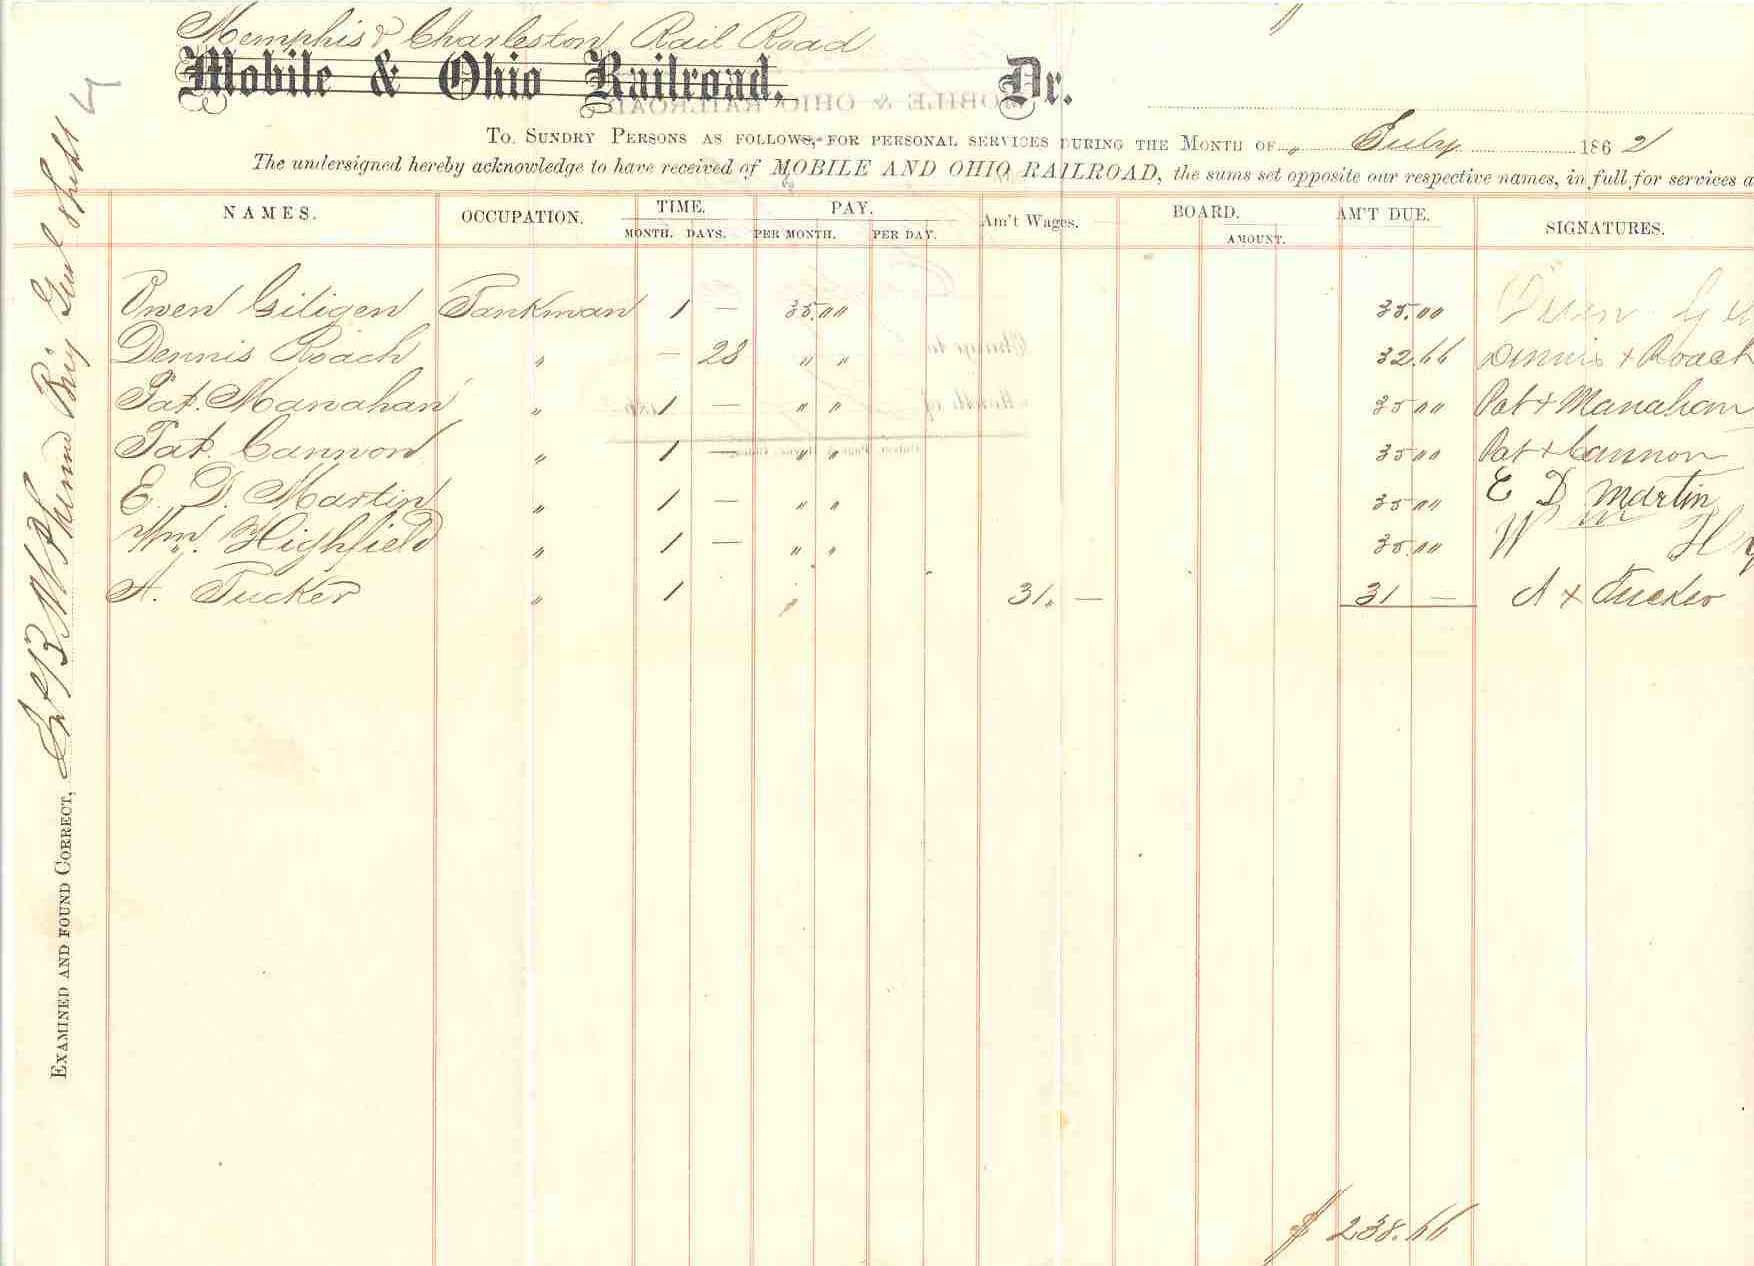 Memphis & Charleston Rail Road
Mobile & Ohio Railroad. Dr.
To Sundry Persons as follows, for personal services during the Month of July 1862
The undersigned hereby acknowledge to have received of MOBILE AND OHIO RAILROAD, the sums set opposite our respective names, in full for services a
NAMES. OCCUPATION. TIME. PAY. Am't Wages. BOARD. AM'T DUE. SIGNATURES.
MONTH. DAYS. PER MONTH. PER DAY. AMOUNT.
Owen Giligen Tankman 1 — 35.00 35.00 Owen
Dennis Roach " — 28 " " 32.66 Dennis + Roach
Pat. Manahan " 1 — " " 35 00 Pat + Manahan
Pat. Cannon " 1 — " " 35 00 Pat + Cannon
E. D. Martin " 1 — " " 35 00 E D Martin
Wm. Highfield " 1 — " " 35.00 Wm
A. Tucker " 1 " 31. — 31 — A + Tucker
$ 238.66
Examined and found Correct,